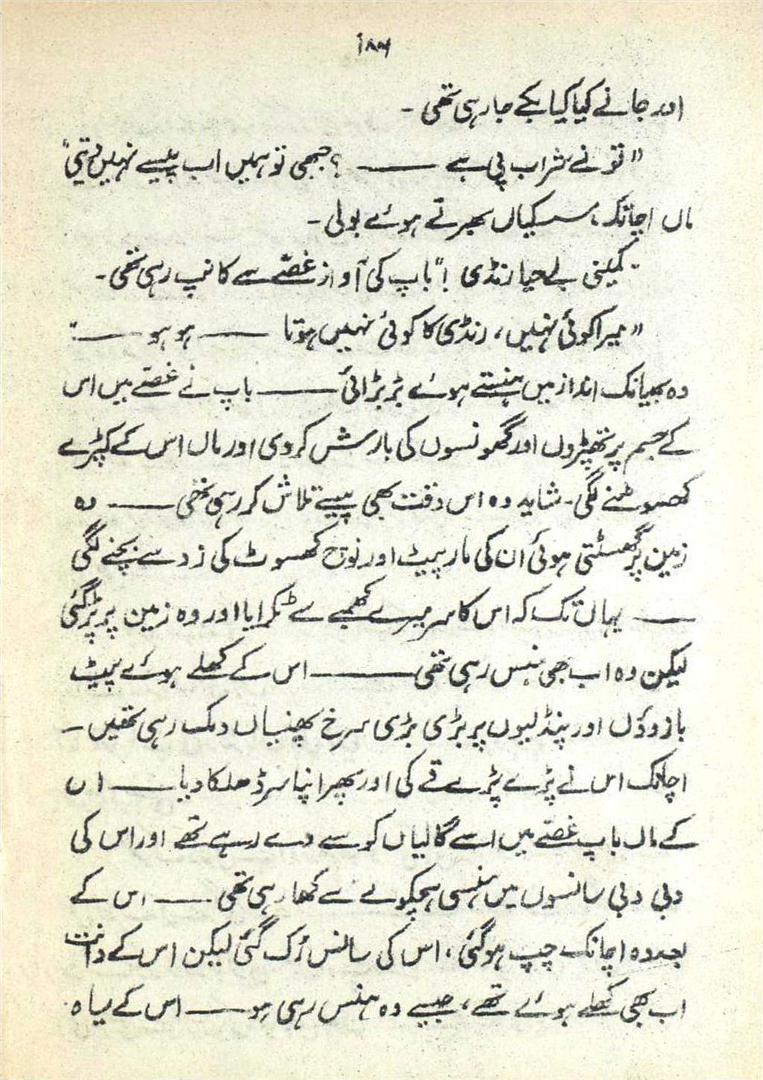 ۱۸۴
اور جانے کیا کیا بکے جا رہی تھی ۔
"تو نے شراب پی ہے ——— ؟ جبھی تو ہمیں اب پیسے نہیں دیتی"
ماں اچانک سسکیاں بھرتے ہوئے بولی ۔
"کمینی بے حیا رنڈی !" باپ کی آواز غصّے سے کانپ رہی تھی ۔
"میرا کوئی نہیں ، رنڈی کا کوئی نہیں ہوتا ——— ہو ہو ———"
وہ بھیانک انداز میں ہنستے ہوئے بڑبڑائی ——— باپ نے غصّے میں اس
کے جسم پر تھپڑوں اور گھونسوں کی بارش کر دی اور ماں اس کے کپڑے
کھسوٹنے لگی ۔ شاید وہ اس وقت بھی پیسے تلاش کر رہی تھی ——— وہ
زمین پر گھسٹتی ہوئی ان کی مار پیٹ اور نوچ کھسوٹ کی زد سے بچنے لگی
——— یہاں تک کہ اس کا سر میرے کھمبے سے ٹکرایا اور وہ زمین پر پڑ گئی
لیکن وہ اب بھی ہنس رہی تھی ——— اس کے کھلے ہوئے پیٹ
بازوؤں اور پنڈلیوں پر بڑی بڑی سرخ پھنیاں دمک رہی تھیں ۔
اچانک اس نے پڑے پڑے قے کی اور پھر اپنا سر ڈھلکا دیا ——— اس
کے ماں باپ غصّے میں اسے گالیاں کوسے دے رہے تھے اور اس کی
دبی دبی سانسوں میں ہنسی ہچکولے سے کھا رہی تھی ——— اس کے
بعد وہ اچانک چپ ہو گئی ، اس کی سانس رُک گئی لیکن اس کے دانت
اب بھی کھلے ہوئے تھے ، جیسے وہ ہنس رہی ہو ——— اس کے سیاہ